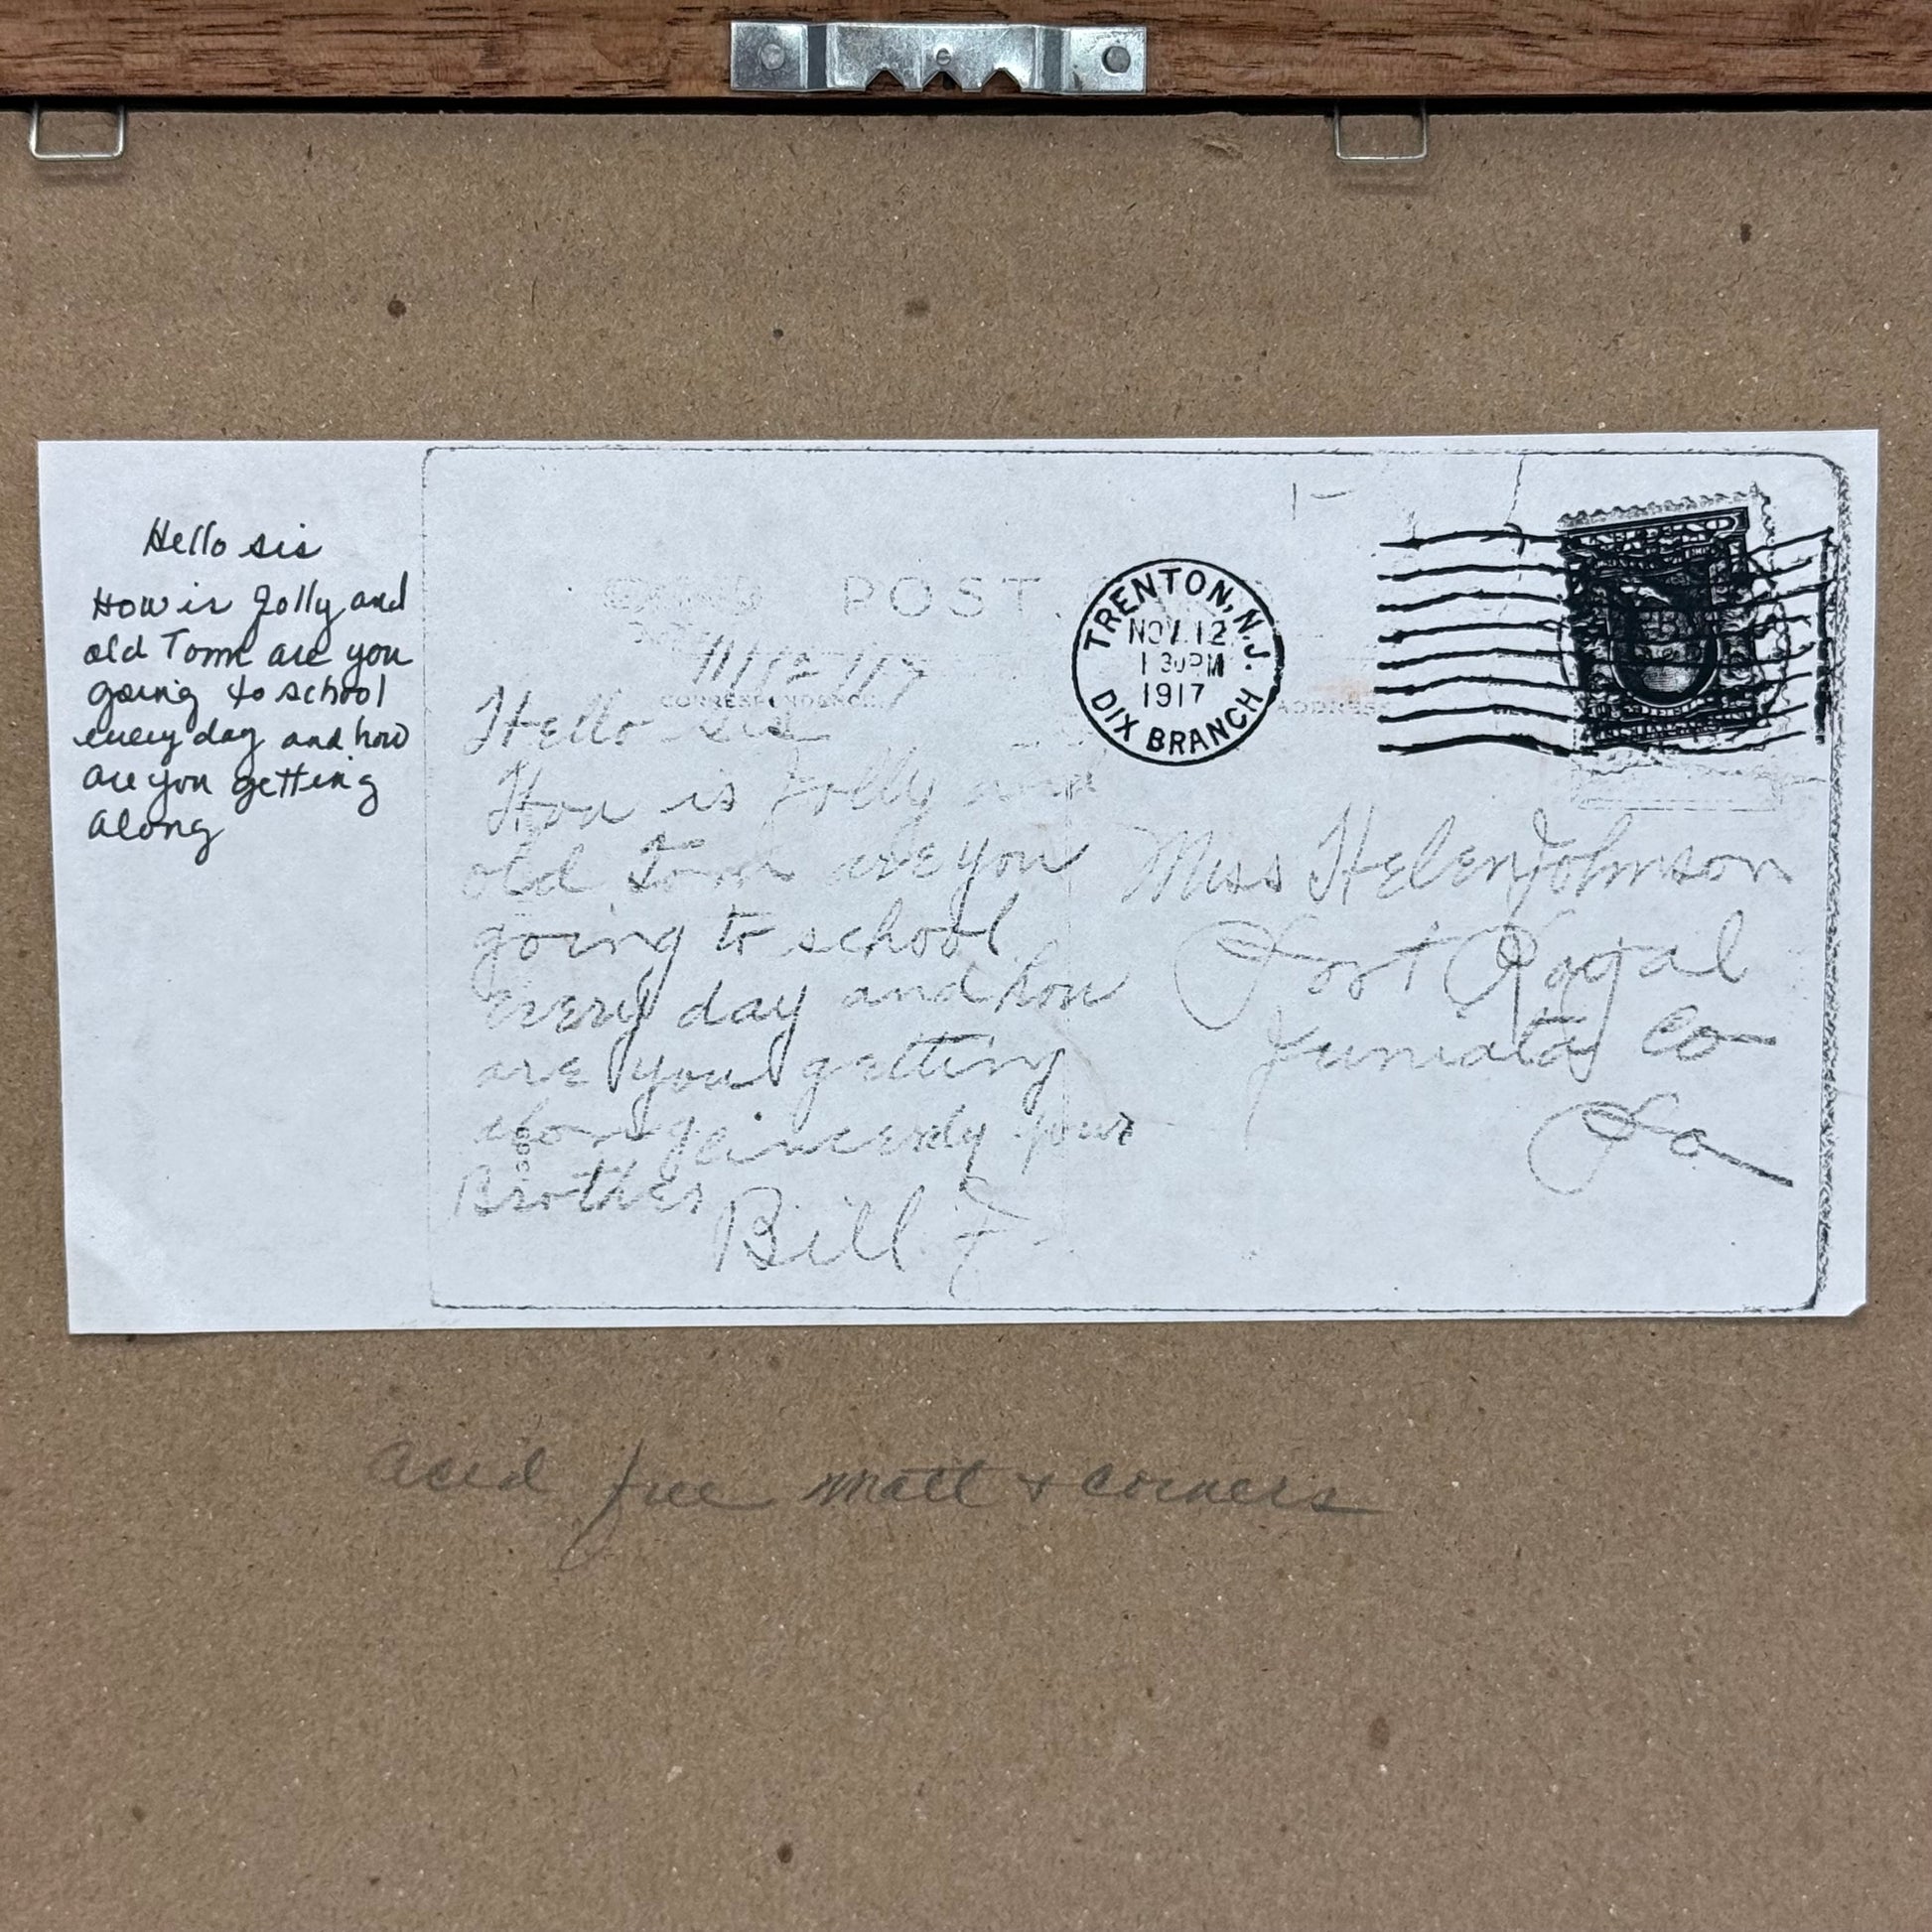 Hello sis
How is Jolly and
old Tom are you
going to school
every day and how
are you getting
along
POST
11/12/17
CORRESPONDENCE
Hello sis
How is Jolly and
old Tom are you
going to school
every day and how
are you getting
along Sincerely your
Brother Bill J
TRENTON, N.J.
NOV. 12
1 30 PM
1917
DIX BRANCH
ADDRESS
Miss Helen Johnson
Port Royal
Juniata Co
Pa
acid free matt + corners